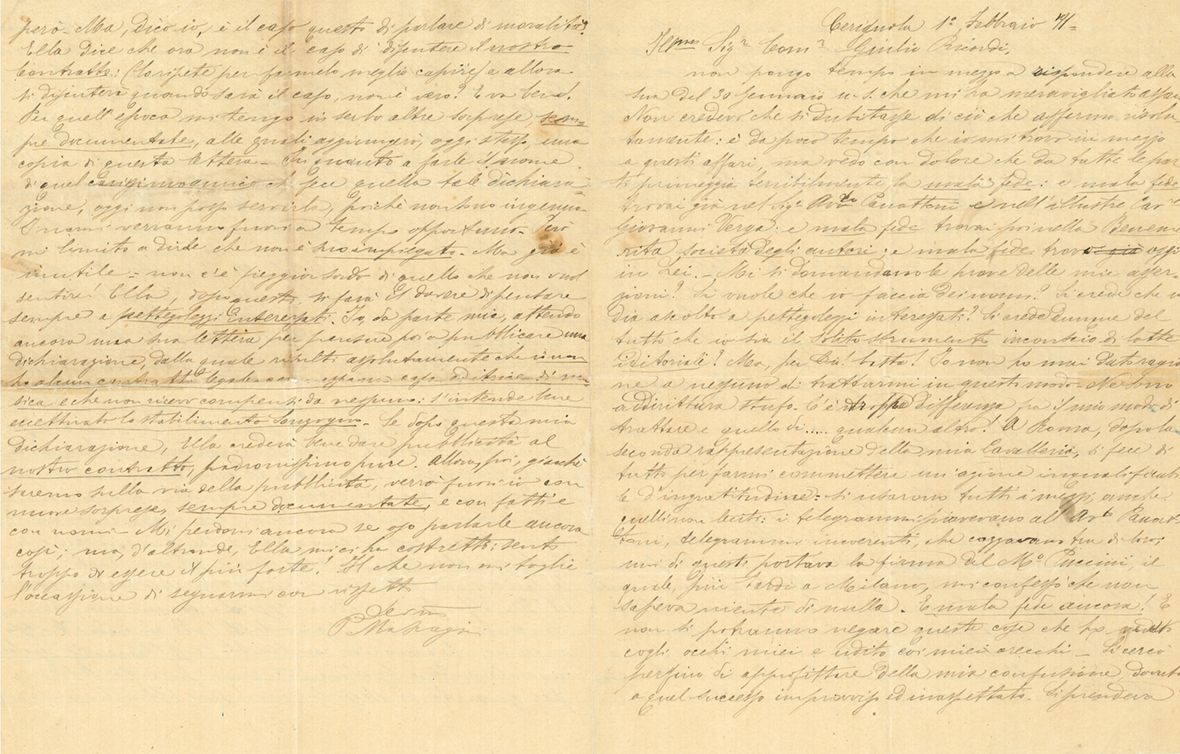 Cerignola 1° Febbraio 91-
Sigr. Comr. Giulio Ricordi,
non pongo tempo in mezzo a rispondere alla
sua del 30 Gennaio u. s. che mi ha meravigliato assai.
Non credevo che si dubitasse di ciò che affermo nosta
tamente: è da poco tempo che io mi trovo in mezzo
a questi affari, ma vedo con dolore che da tutte le par
ti primeggia sensibilmente la mala fede: e mala fede
trovai già nel Sigr. e nell'illustre Cavr.
Giovanni Verga: e mala fede trovai poi nella Beneme
rita società degli autori: e mala fede trovo oggi
in Lei. - Mi si domandano le prove delle mie asser
zioni? Si vuole che io faccia dei nomi? Si crede che io
dia ascolto a pettegolezzi interessati? Si crede dunque del
tutto che io sia il solito strumento inconscio di lotte
editoriali? Ma, per Dio, basta! Io non ho mai dato ragio
ne a nessuno di trattarmi in questo modo.
addirittura C'è troppa differenza fra il mio modo di
trattare e quello di..... qualcun altro! A Roma, dopo la
seconda rappresentazione della mia Cavalleria, si fece di
tutto per farmi commettere un'azione inqualificabi
le d'ingratitudine: si usarono tutti i mezzi, anche
quelli non leciti: i telegrammi piovevano all'
telegrammi che cozzavano tra di loro;
uno di questi portava la firma del Mo. Puccini, il
quale, più tardi a Milano, mi confessò che non
sapeva niente di nulla. E mala fede ancora! E
non si potranno negare queste cose che ho veduto
cogli occhi miei e udito coi miei orecchi - Si cercò
persino di approfittare della mia confusione dovuta
a quel successo improvviso ed inaspettato. Si prendeva
però - Ma, dico io, è il caso questo di parlare di moralità?
Ella dice che ora non è il caso di discutere il nostro
contratto: (lo ripete per farmelo meglio capire) e allora
si discuterà quando sarà il caso, non è vero? E va bene!
Per quell'epoca mi tengo in serbo altre sorprese sem-
pre documentate, alle quali aggiungerò, oggi stesso, una
copia di questa lettera - In quanto a farle il nome
di quel che fece quella tale dichiara
zione, oggi non posso servirla, poiché non sono ingenuo
I nomi verranno fuori a tempo opportuno - Io
mi limito a dirle che non è un suo impiegato. Ma già è
inutile - non c'è peggior sordo di quello che non vuol
sentire! Ella, dopo questo, si farà il dovere di pensare
sempre a pettegolezzi interessati. Io, da parte mia, attendo
ancora una sua lettera per pensare poi a pubblicare una
dichiarazione dalla quale risulti assolutamente che io non
ho alcun contratto legale con nessuna casa editrice di mu-
sica e che non ricevo compensi da nessuno: s'intende bene
eccettuato lo stabilimento Sonzogno. Se dopo questa mia
dichiarazione, Ella crederà bene dare pubblicità al
nostro contratto, padronissimo pure. Allora, poi, giacché
saremo sulla via della pubblicità, verrò fuori io con
nuove sorprese, sempre documentate, e con fatti e
con nomi - Mi perdoni ancora se oso parlarle ancora
così; ma, d'altronde, Ella mi ci ha costretto: sento
troppo di essere il più forte! Il che non mi toglie
l'occasione di segnarmi con rispetto
P. Mascagni